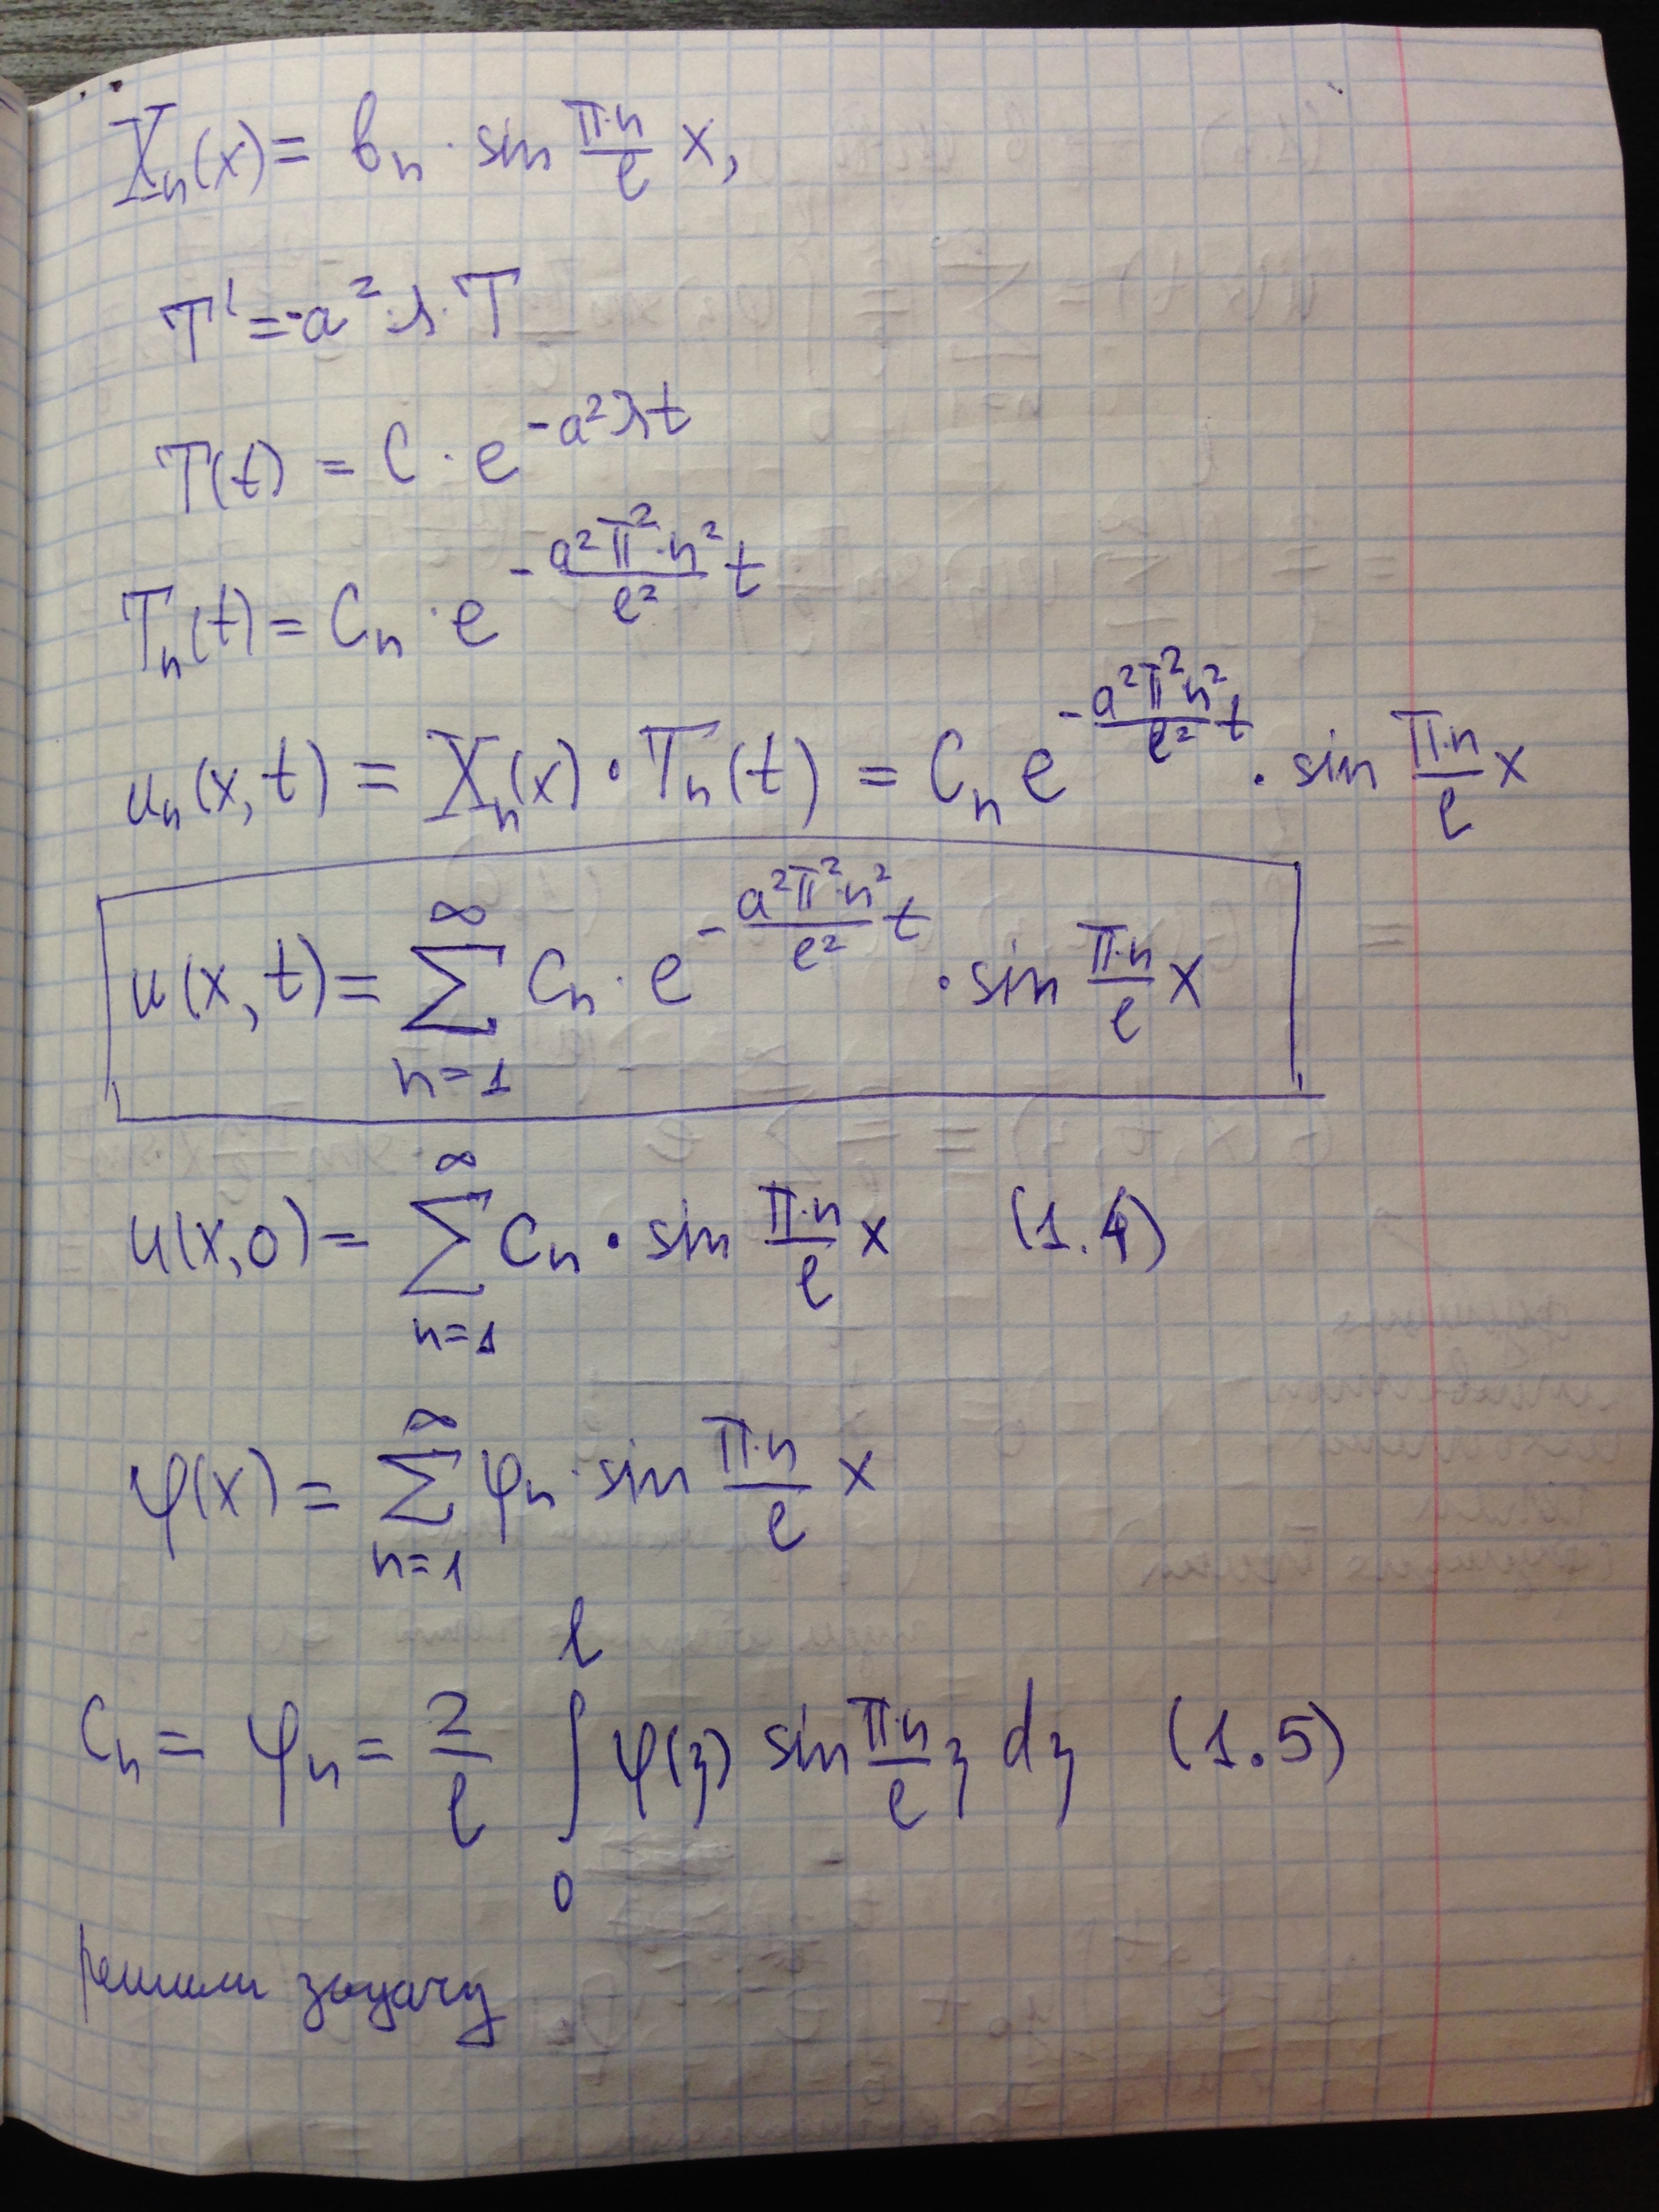 Xₙ(x) = bₙ · sin (π·n/l) x,
T' = -a² · λ · T
T(t) = C · e^(-a²λt)
Tₙ(t) = Cₙ · e^(-(a²π²·n²/l²) t)
uₙ(x, t) = Xₙ(x) · Tₙ(t) = Cₙ e^(-(a²π²n²/l²) t) · sin (π·n/l) x
u(x, t) = ∑_{n=1}^{∞} Cₙ · e^(-(a²π²·n²/l²) t) · sin (π·n/l) x
u(x, 0) = ∑_{n=1}^{∞} Cₙ · sin (π·n/l) x (1.4)
φ(x) = ∑_{n=1}^{∞} φₙ · sin (π·n/l) x
Cₙ = φₙ = 2/l ∫₀^l φ(ξ) sin (π·n/l) ξ dξ (1.5)
решили задачу